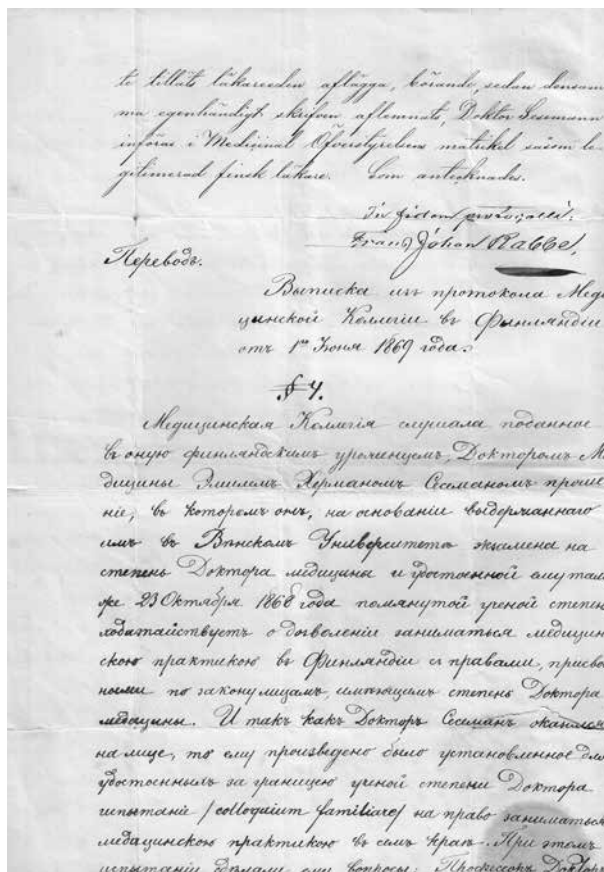 te tillåts läkareeden aflägga, börande, sedan densam
ma egenhändigt skrifven aflemnats, Doktor Sesemann
införas i Medicinal Öfverstyrelsens matrikel såsom le-
gitimerad finsk läkare. Som antecknades.
In fidem protocolli:
Frans Johan Rabbe,
Переводъ.
Выписка изъ протокола Меди
цинской Коллегіи въ Финляндіи
отъ 1го Іюня 1869 года.
§ 4.
Медицинская Коллегія слушала поданное
въ оную финляндскимъ уроженцемъ, Докторомъ М
дицины Эмилемъ Херманомъ Сесеманомъ проше
ніе, въ которомъ онъ, на основаніи выдержаннаго
имъ въ Вѣнскомъ Университетѣ экзамена на
степень Доктора медицины и удостоенной ему там
же 23 Октября 1868 года помянутой ученой степен
ходатайствуетъ о дозволеніи заниматься медицин
скою практикою въ Финляндіи съ правами, присво
нными по закону лицамъ, имѣющимъ степень Доктора
медицины. И такъ какъ Докторъ Сесеманъ оказался
на лице, то ему произведено было установленное для
удостоенныхъ за границею ученой степени Доктора
испытаніе /colloquium familiare/ на право заниматься
медицинскою практикою въ семъ краѣ. При этомъ
испытаніи дѣлали ему вопросы: Профессоръ Докторъ